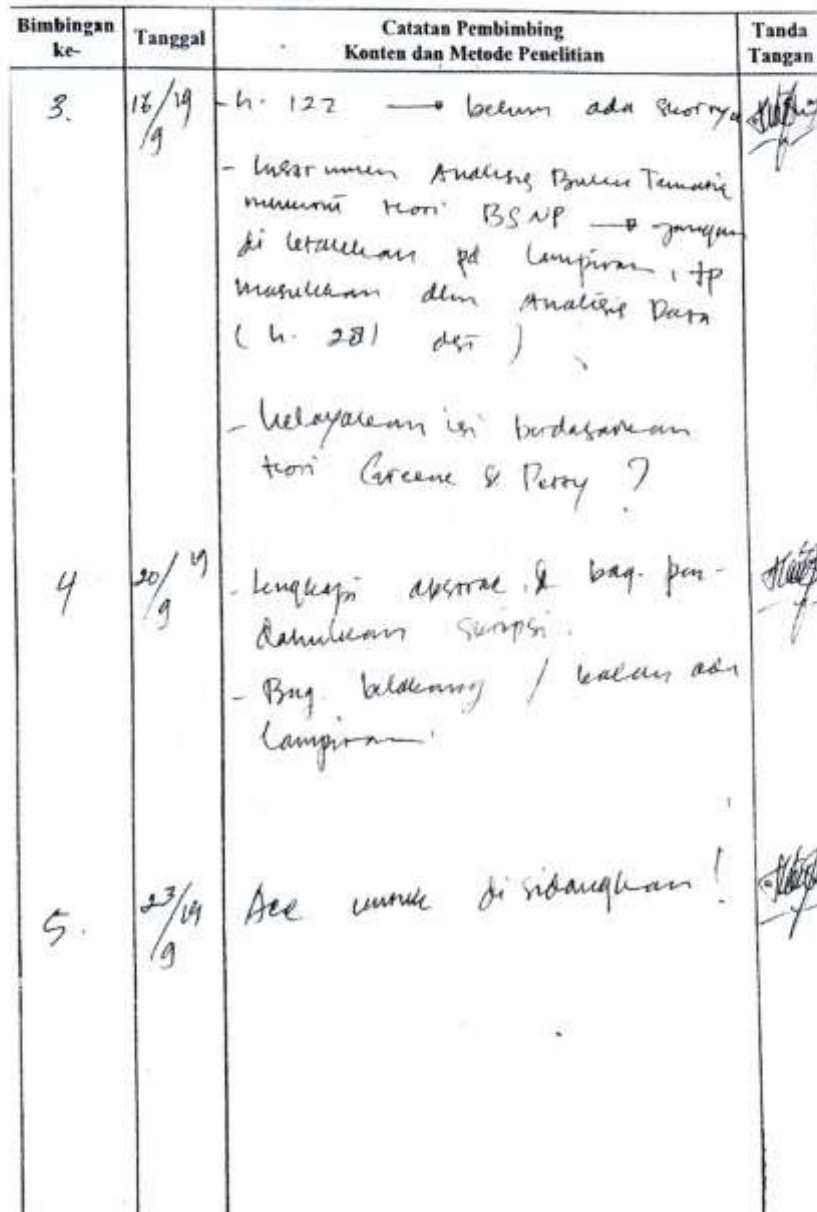 Bimbingan ke-
Tanggal
Catatan Pembimbing
Konten dan Metode Penelitian
Tanda Tangan
3.
16/9 19
- h. 122 → belum ada skornya
- Instrumen Analisis Buku Tematik
menurut teori BSNP → jangan
di letakkan pd lampiran, tp
masukkan dlm Analisis Data
(h. 28) dst )
- kelayakan isi berdasarkan
teori Greene & Petty ?
4
20/9 19
- lengkapi abstrak & bag. pen-
dahuluan skripsi.
- Bag. belakang / kalau ada
lampiran.
5.
23/9 19
Acc untuk di sidangkan !